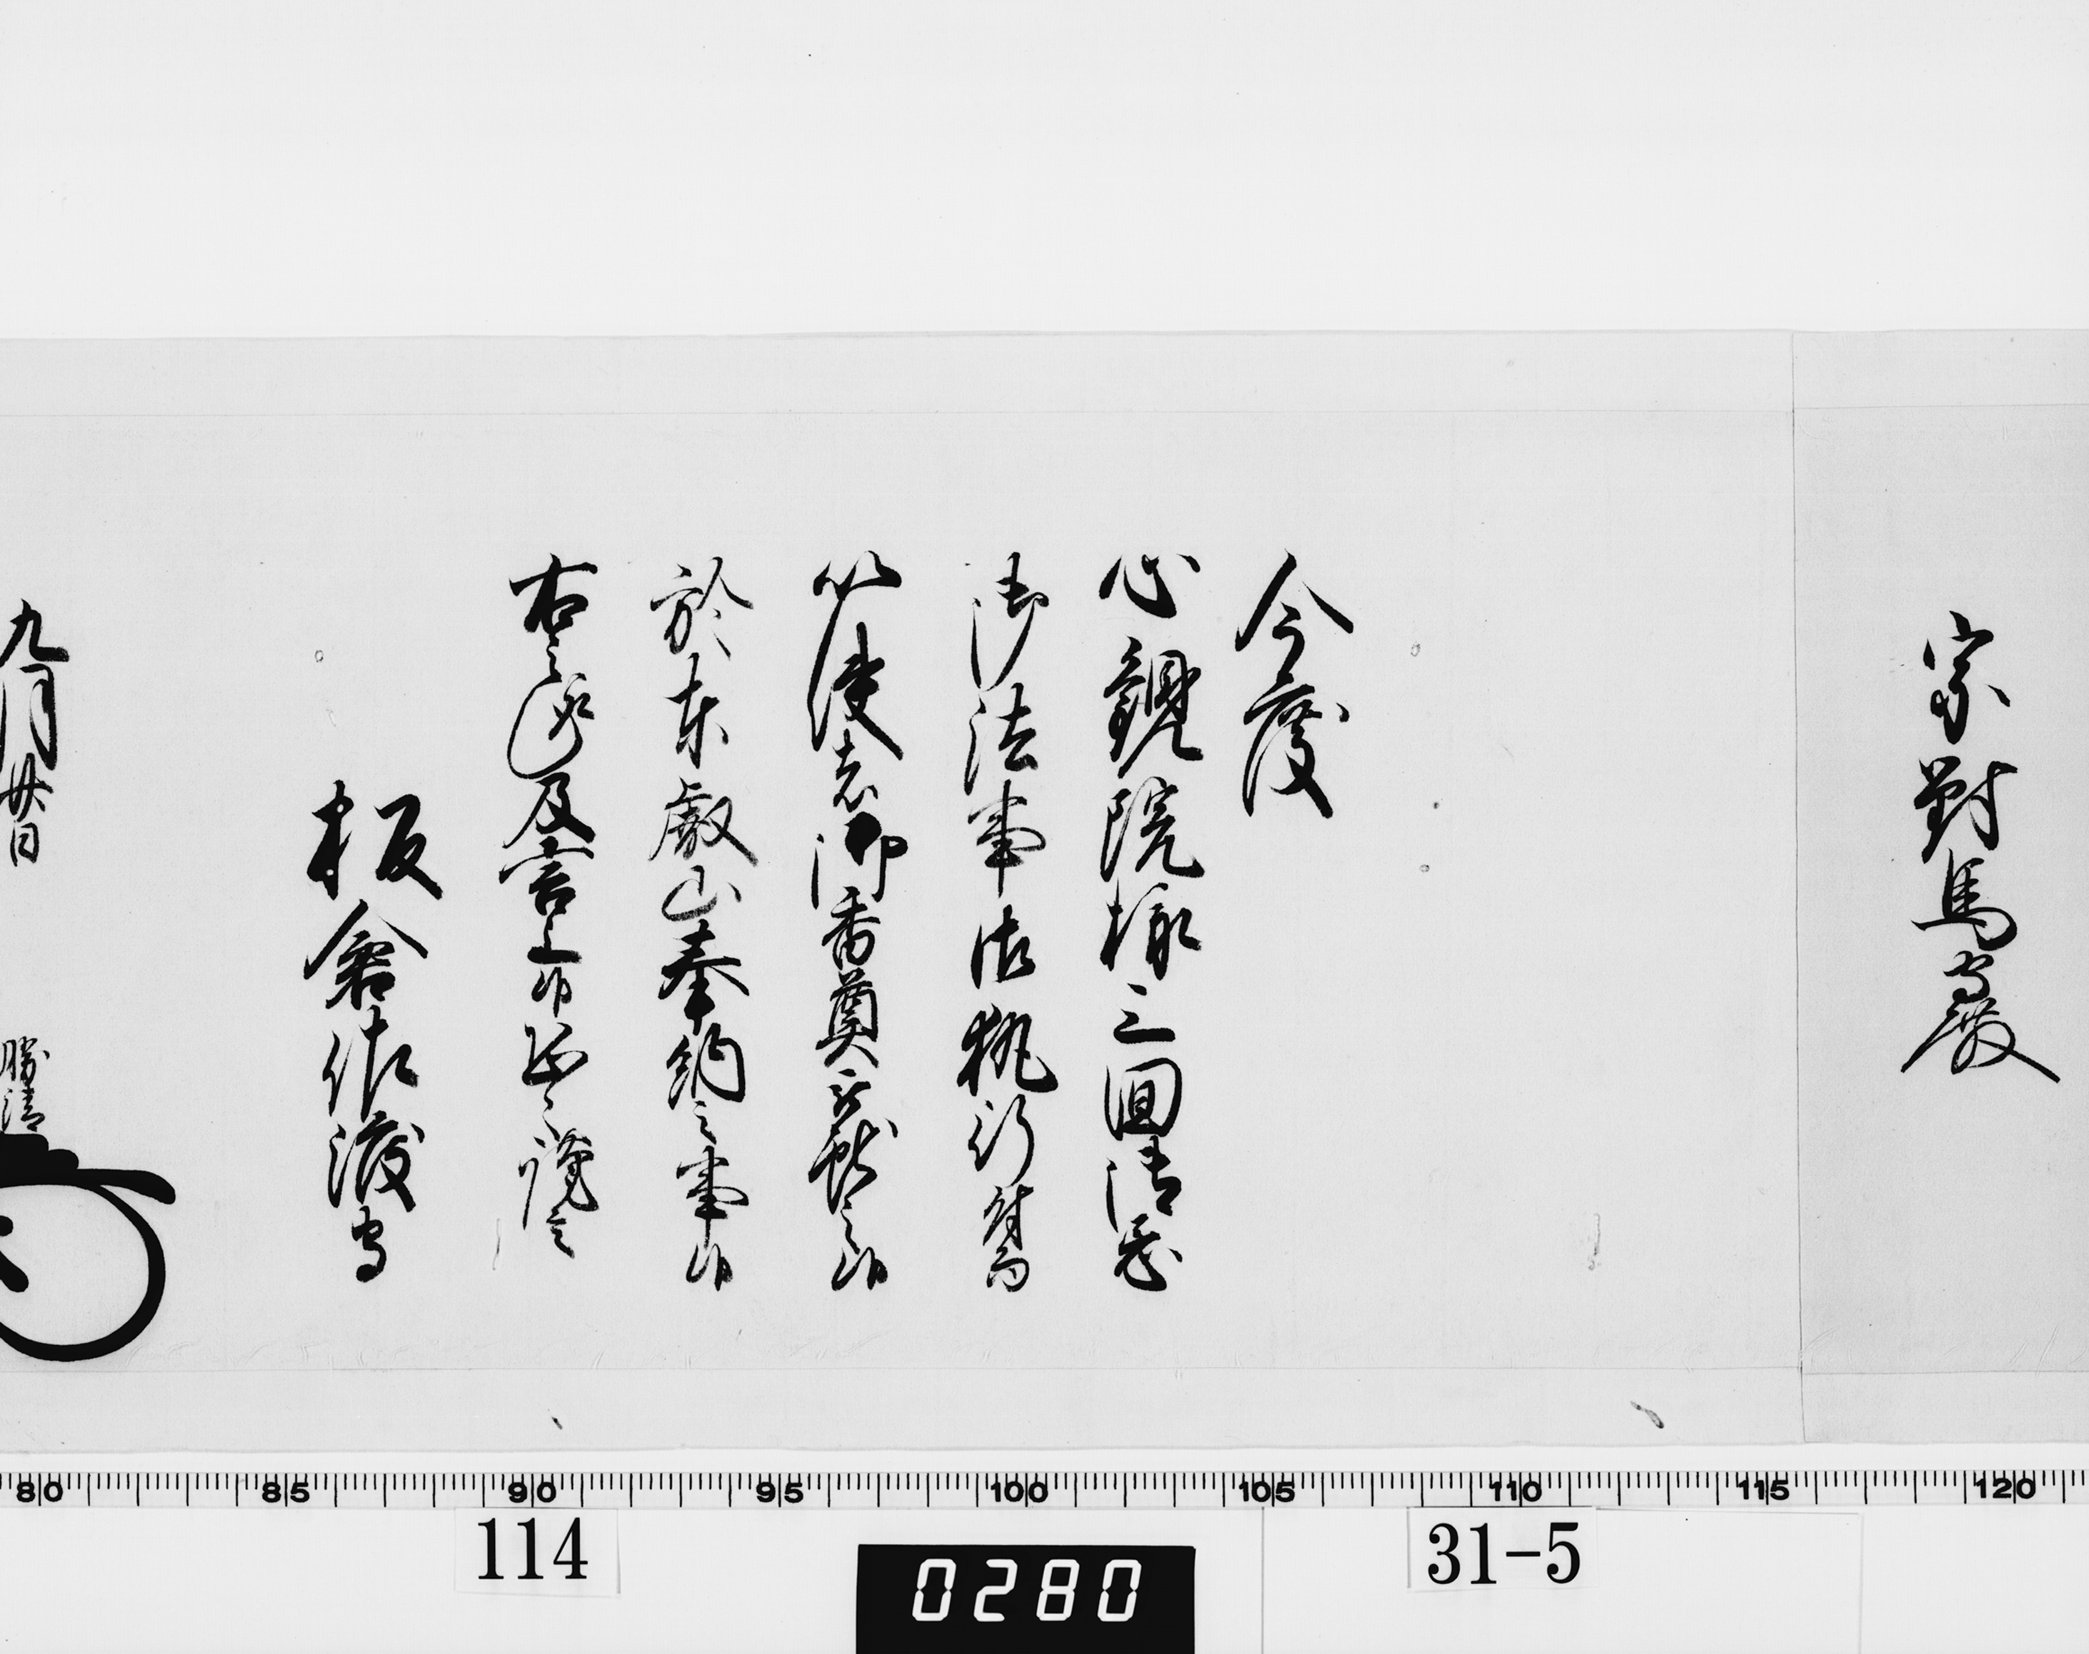 宗對馬守殿
今度
心觀院様三回御忌
御法事御執行付而
以使者御香奠被獻之候
於東叡山奉納之事候
右之趣及言上候恐々謹言
板倉佐渡守
九月廿日
勝清
80 85 90 95 100 105 110 115 120
114
0280
31-5